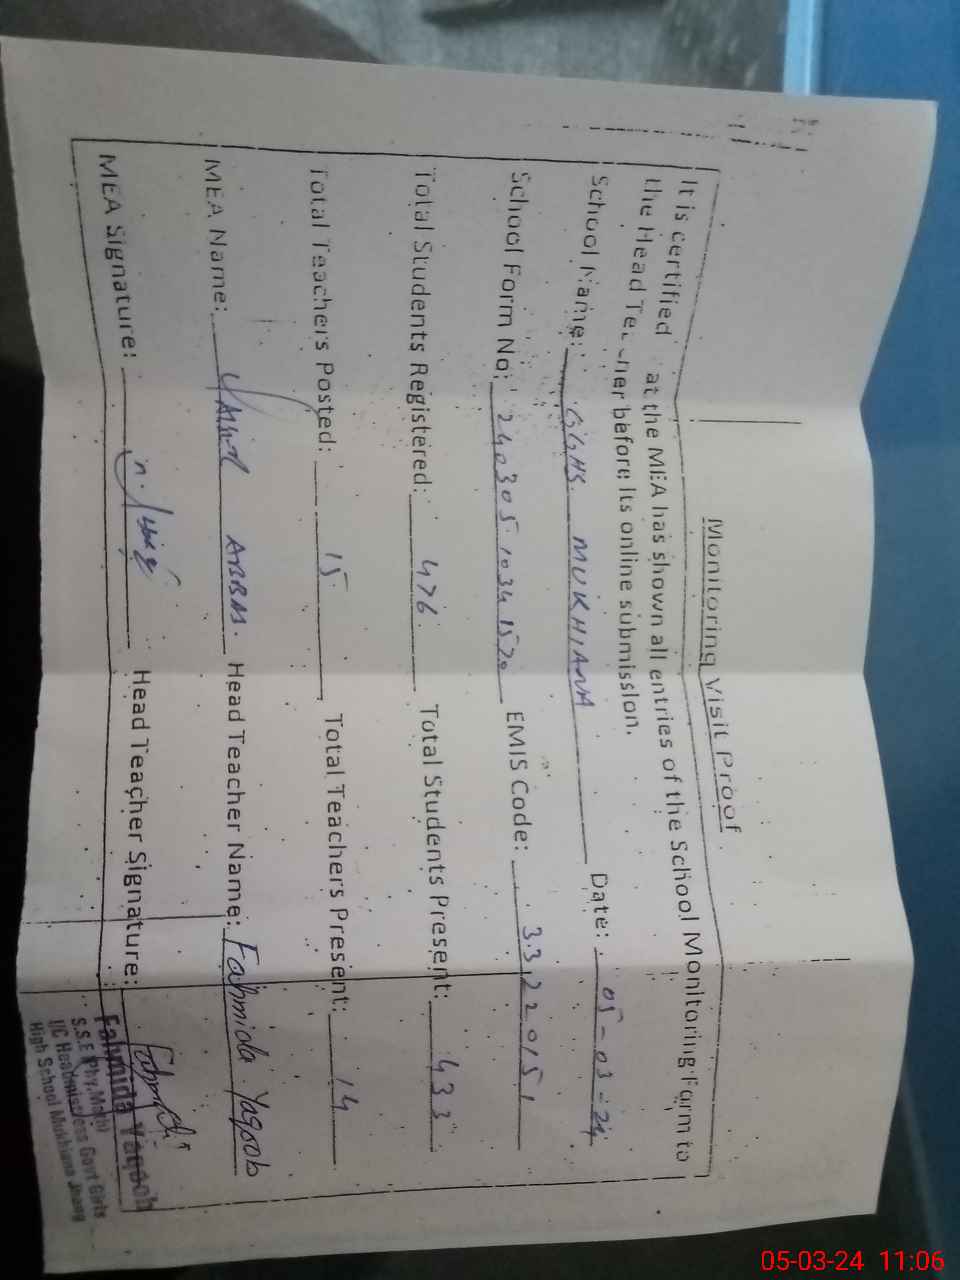 Monitoring Visit Proof
It is certified at the MEA has shown all entries of the School Monitoring Form to
the Head Teacher before its online submission.
School Name: GGHS MUKHIANA Date: 05-03-24
School Form No: EMIS Code: 33220151
Total Students Registered: 476 Total Students Present: 433
Total Teachers Posted: 15 Total Teachers Present: 14
MEA Name: ABBAS Head Teacher Name: Fahmida Yaqoob
MEA Signature: Head Teacher Signature: Fahmida
Fahmida Yaqoob
S.S.E Phy, Math
I/C Headmistress Govt Girls
High School Mukhiana Jhang
05-03-24 11:06